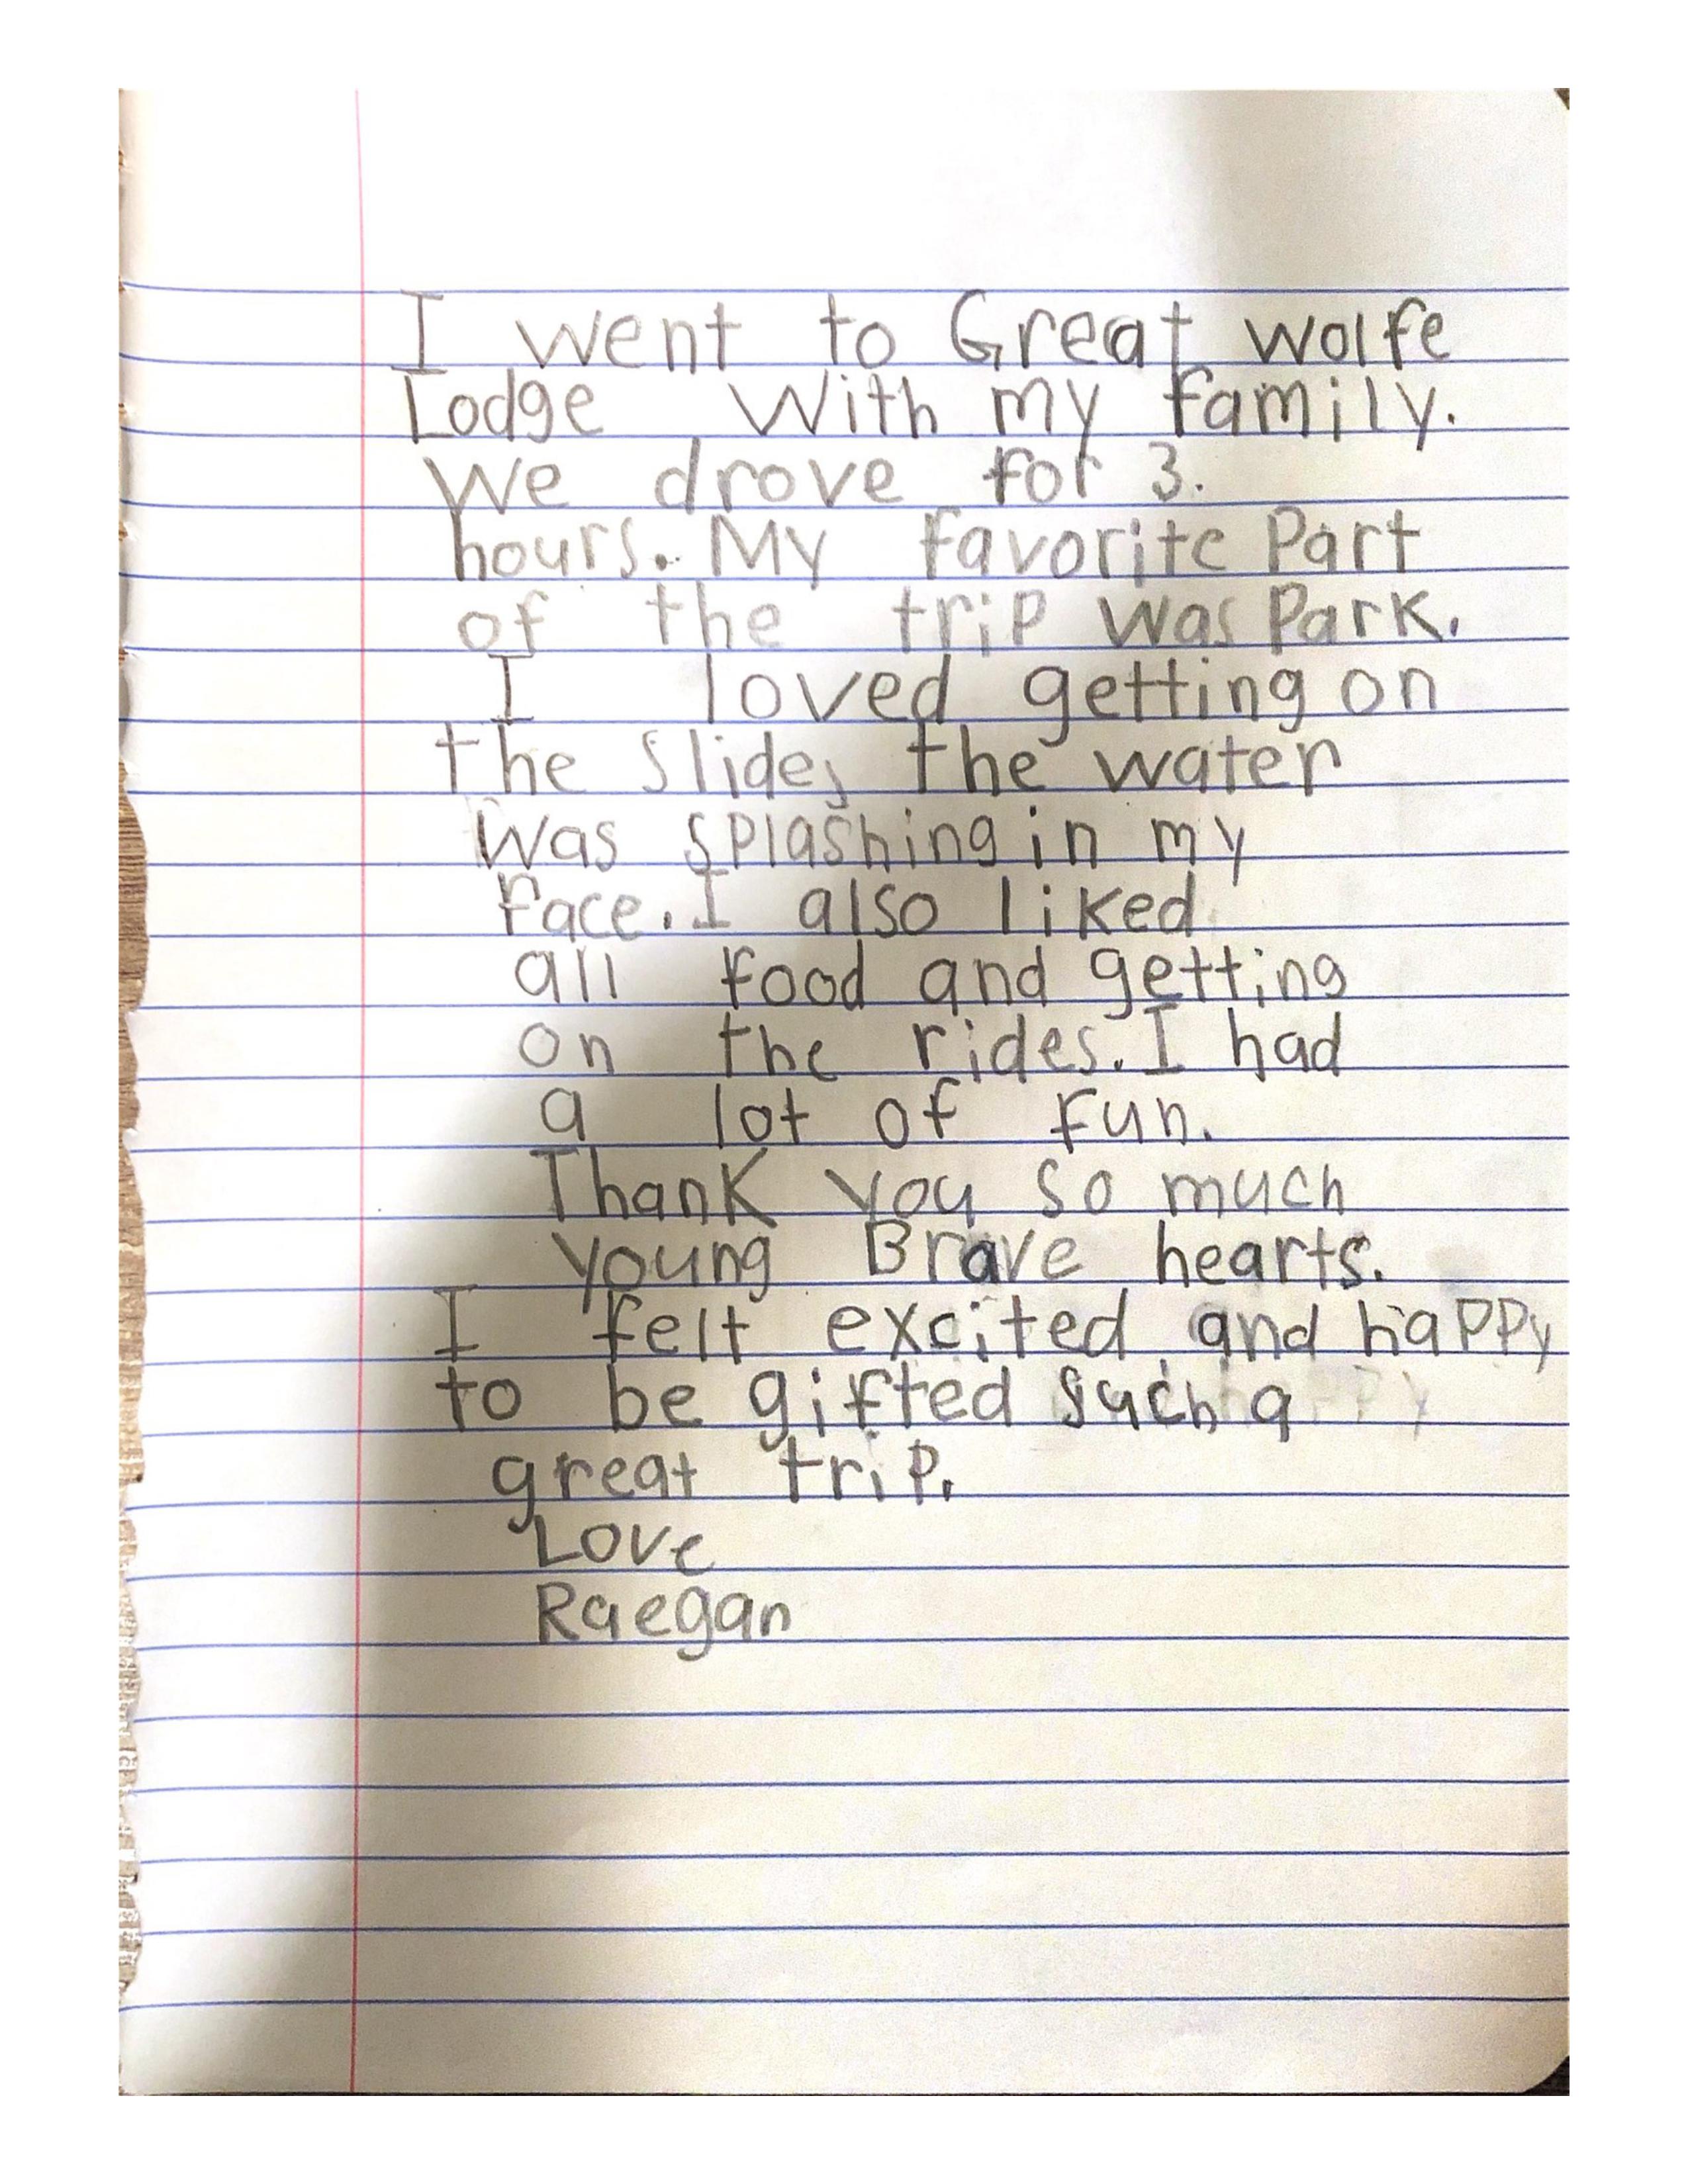 I went to Great wolfe
Lodge With my family.
We drove for 3.
hours. My favorite Part
of the triP was Park.
I loved getting on
the slide, the water
was sPlashing in my
face. I also liked
all food and getting
on the rides. I had
a lot of fun.
Thank you so much
young Brave hearts.
I felt excited and haPPy
to be gifted such a
great triP.
Love
Raegan